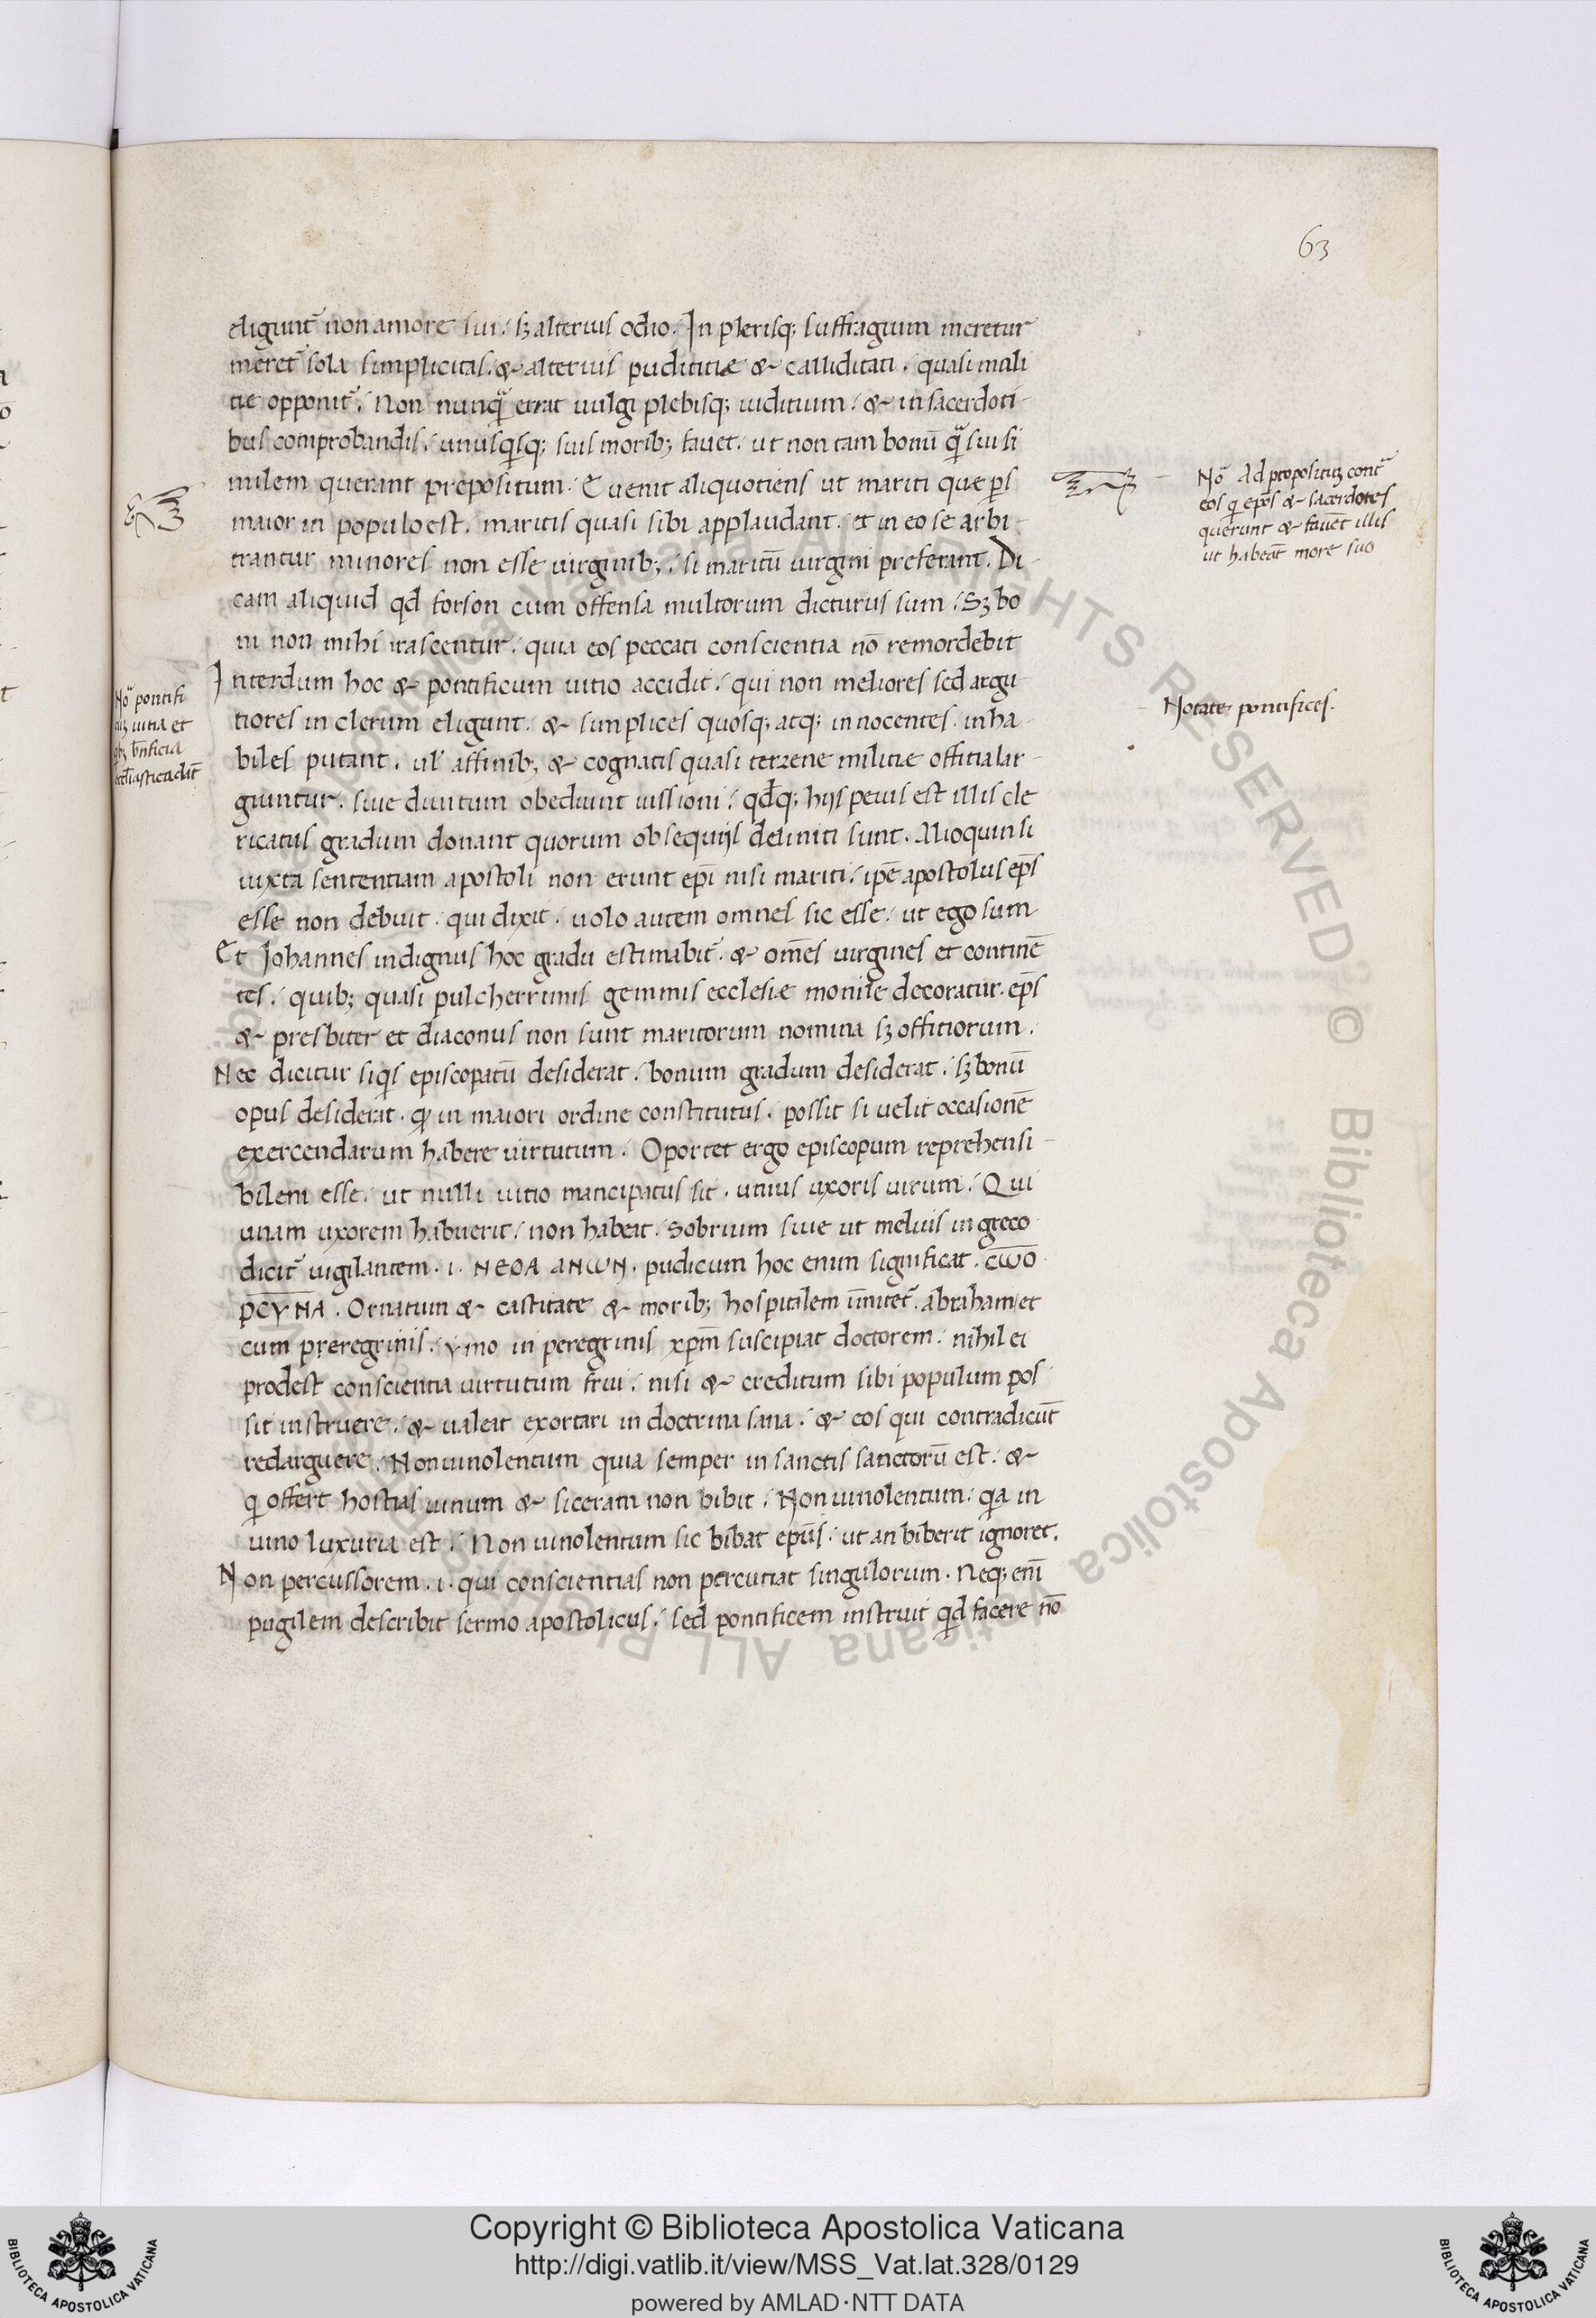 63
eligunt̃ non amore sui. sꝫ alterius odio. In pleriſqꝫ suffragium meretur
meret̃ sola simplicitas. & alterius pudititiæ & calliditati. quasi mali
tie opponit̃. Non nunq̃ errat uulgi plebisqꝫ iuditium. & in sacerdoti-
bus comprobandis. unusqisqꝫ suis moribꝫ fauet. ut non tam bonū q̃ sui si
milem querant prepositum. Euenit aliquotiens ut mariti que ꝑs
maior in populo est. maritis quasi sibi applaudant. et in eo se arbi-
trantur minores non esse uirginibꝫ. si maritū uirgini preferant. Di-
cam aliquid qđ forson cum offensa multorum dicturus sum. Sꝫ bo
ni non mihi irascentur. quia eos peccati conscientia nō remordebit
Interdum hoc & pontificum uitio accidit. qui non meliores sed argu-
tiores in clerum eligunt. & simplices quosqꝫ atqꝫ innocentes. inha-
biles putant. ul' affinibꝫ & cognatis quasi terrene militiæ offitia lar-
giuntur. siue diuitum obediunt iussioni. qđqꝫ hijs peius est illis cle
ricatus gradum donant quorum obsequijs deliniti sunt. Alioquin si
iuxta sententiam apostoli non erunt ep̄i nisi mariti. ip̄e apostolus ep̄s
esse non debuit. qui dixit. uolo autem omnes sic esse. ut ego sum
Et Johannes indignus hoc gradu estimabit̃. & om̄es uirgines et continē
tes. quibꝫ quasi pulcherrimis gemmis ecclesiæ monile decoratur. ep̄s
& presbiter et diaconus non sunt maritorum nomina sꝫ offitiorum.
Nec dicitur siqis episcopatū desiderat. bonum gradum desiderat. sꝫ bonū
opus desiderat. ꝙ in maiori ordine constitutus. possit si uelit occasionē
exercendarum habere uirtutum. Oportet ergo episcopum reprehensi-
bilem esse. ut nulli uitio mancipatus sit. unius uxoris uirum. Qui
unam uxorem habuerit. non habeat. Sobrium siue ut melius in greco
dicit̃ uigilantem. i. NEOA ANωN. pudicum hoc enim significat. CωO
PCYNA. Ornatum & castitate & moribꝫ hospitalem īmitet̃. abraham et
cum preregrinis. ymo in peregrinis xp̄m suscipiat doctorem. nihil ei
prodest conscientia uirtutum frui. nisi & creditum sibi populum pos
sit instruere. & ualeat exortari in doctrina sana. & eos qui contradicūt
redarguere. Non uinolentum quia semper in sanctis sanctorū est. &
qi offert hostias uinum & siceram non bibit. Non uinolentum. qa in
uino luxuria est. Non uinolentum sic bibat epūs. ut an biberit ignoret.
Non percussorem. i. qui conscientias non percutiat singulorum. Neqꝫ enī
pugilem describit sermo apostolicus. sed pontificem instruit qid facere nō
Nō pontifi
uitia et
bn̄ficia
Nō Ad propositꝫ cont̃
eos qi ep̄os & sacerdotes
querunt & fauēt illis
ut habeāt more suo
Notate pontifices.
Biblioteca Apostolica Vaticana ALL RIGHTS RESERVED ©
Copyright © Biblioteca Apostolica Vaticana
http://digi.vatlib.it/view/MSS_Vat.lat.328/0129
powered by AMLAD·NTT DATA
BIBLIOTECA APOSTOLICA VATICANA
BIBLIOTECA APOSTOLICA VATICANA